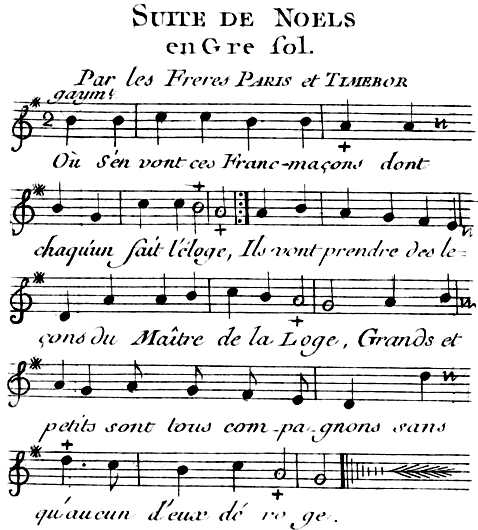 SUITE DE NOELS
en G re sol.
Par les Freres PARIS et TIMEBOR
gaymt.
2
Où s'en vont ces Franc-maçons dont
chaqu'un fait l'éloge, Ils vont prendre des le-
çons du Maître de la Loge, Grands et
petits sont tous com-pa-gnons sans
qu'aucun d'eux dé ro ge.